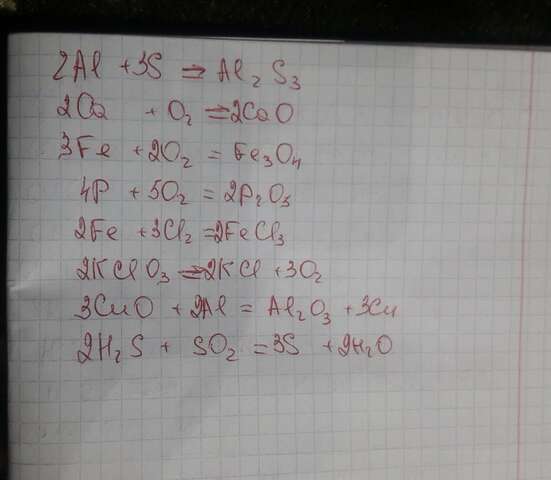 2Al + 3S = Al₂S₃
2Ca + O₂ = 2CaO
3Fe + 2O₂ = Fe₃O₄
4P + 5O₂ = 2P₂O₅
2Fe + 3Cl₂ = 2FeCl₃
2KClO₃ = 2KCl + 3O₂
3CuO + 2Al = Al₂O₃ + 3Cu
2H₂S + SO₂ = 3S + 2H₂O